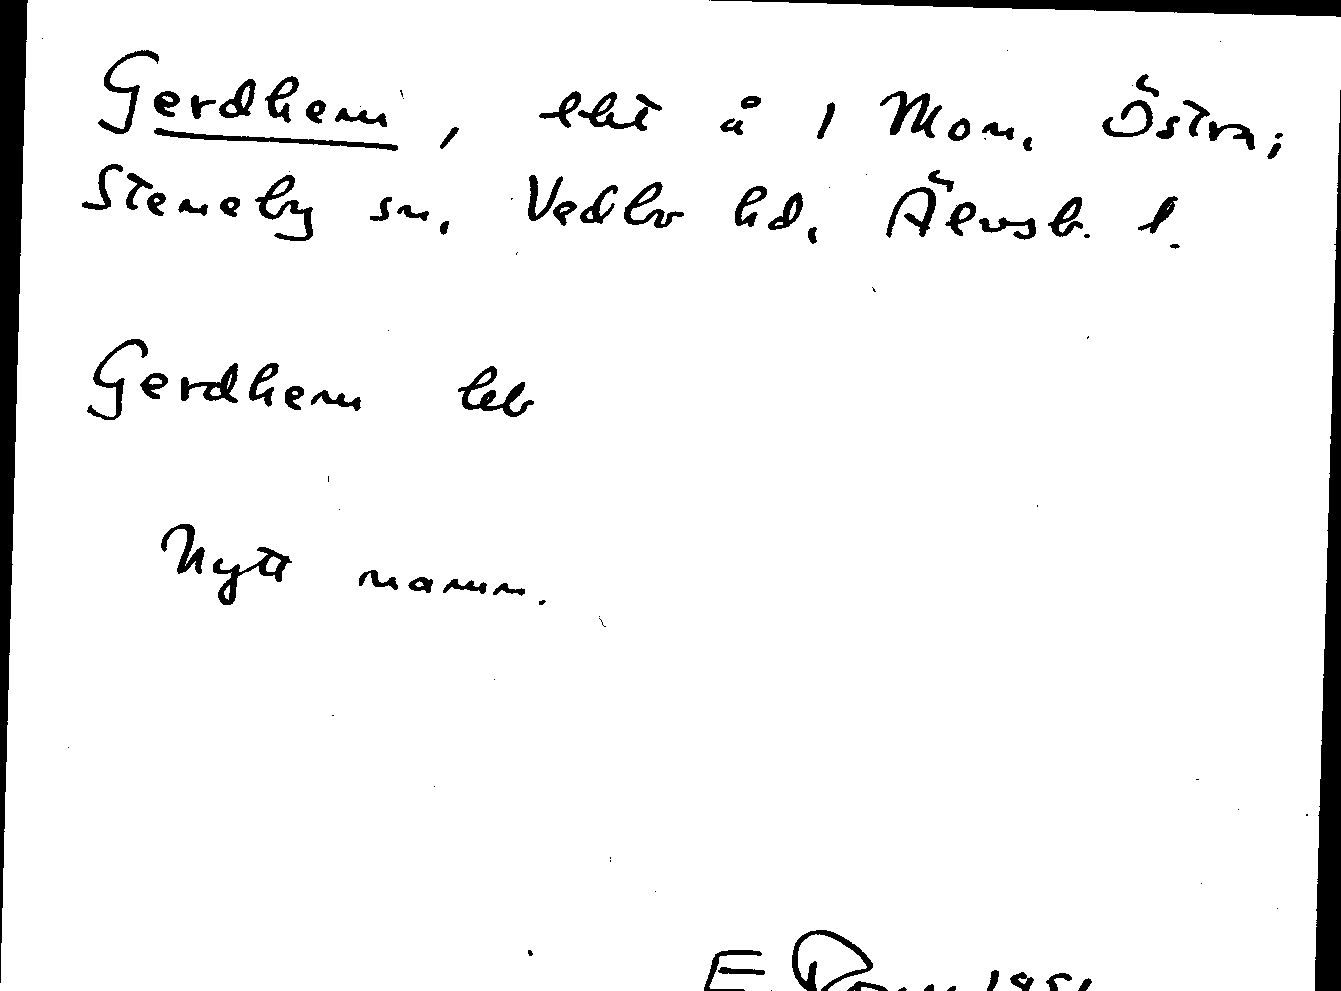 Gerdhem, lht å 1 Mon. Östra;
Steneby sn. Vedbo hd. Älvsb. l.
Gerdhem leb
Nytt namn.
E.